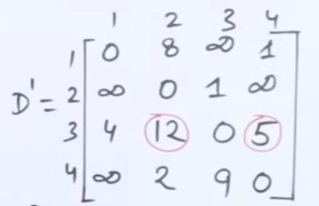 1 2 3 4
1 0 8 ∞ 1
D' = 2 ∞ 0 1 ∞
3 4 12 0 5
4 ∞ 2 9 0